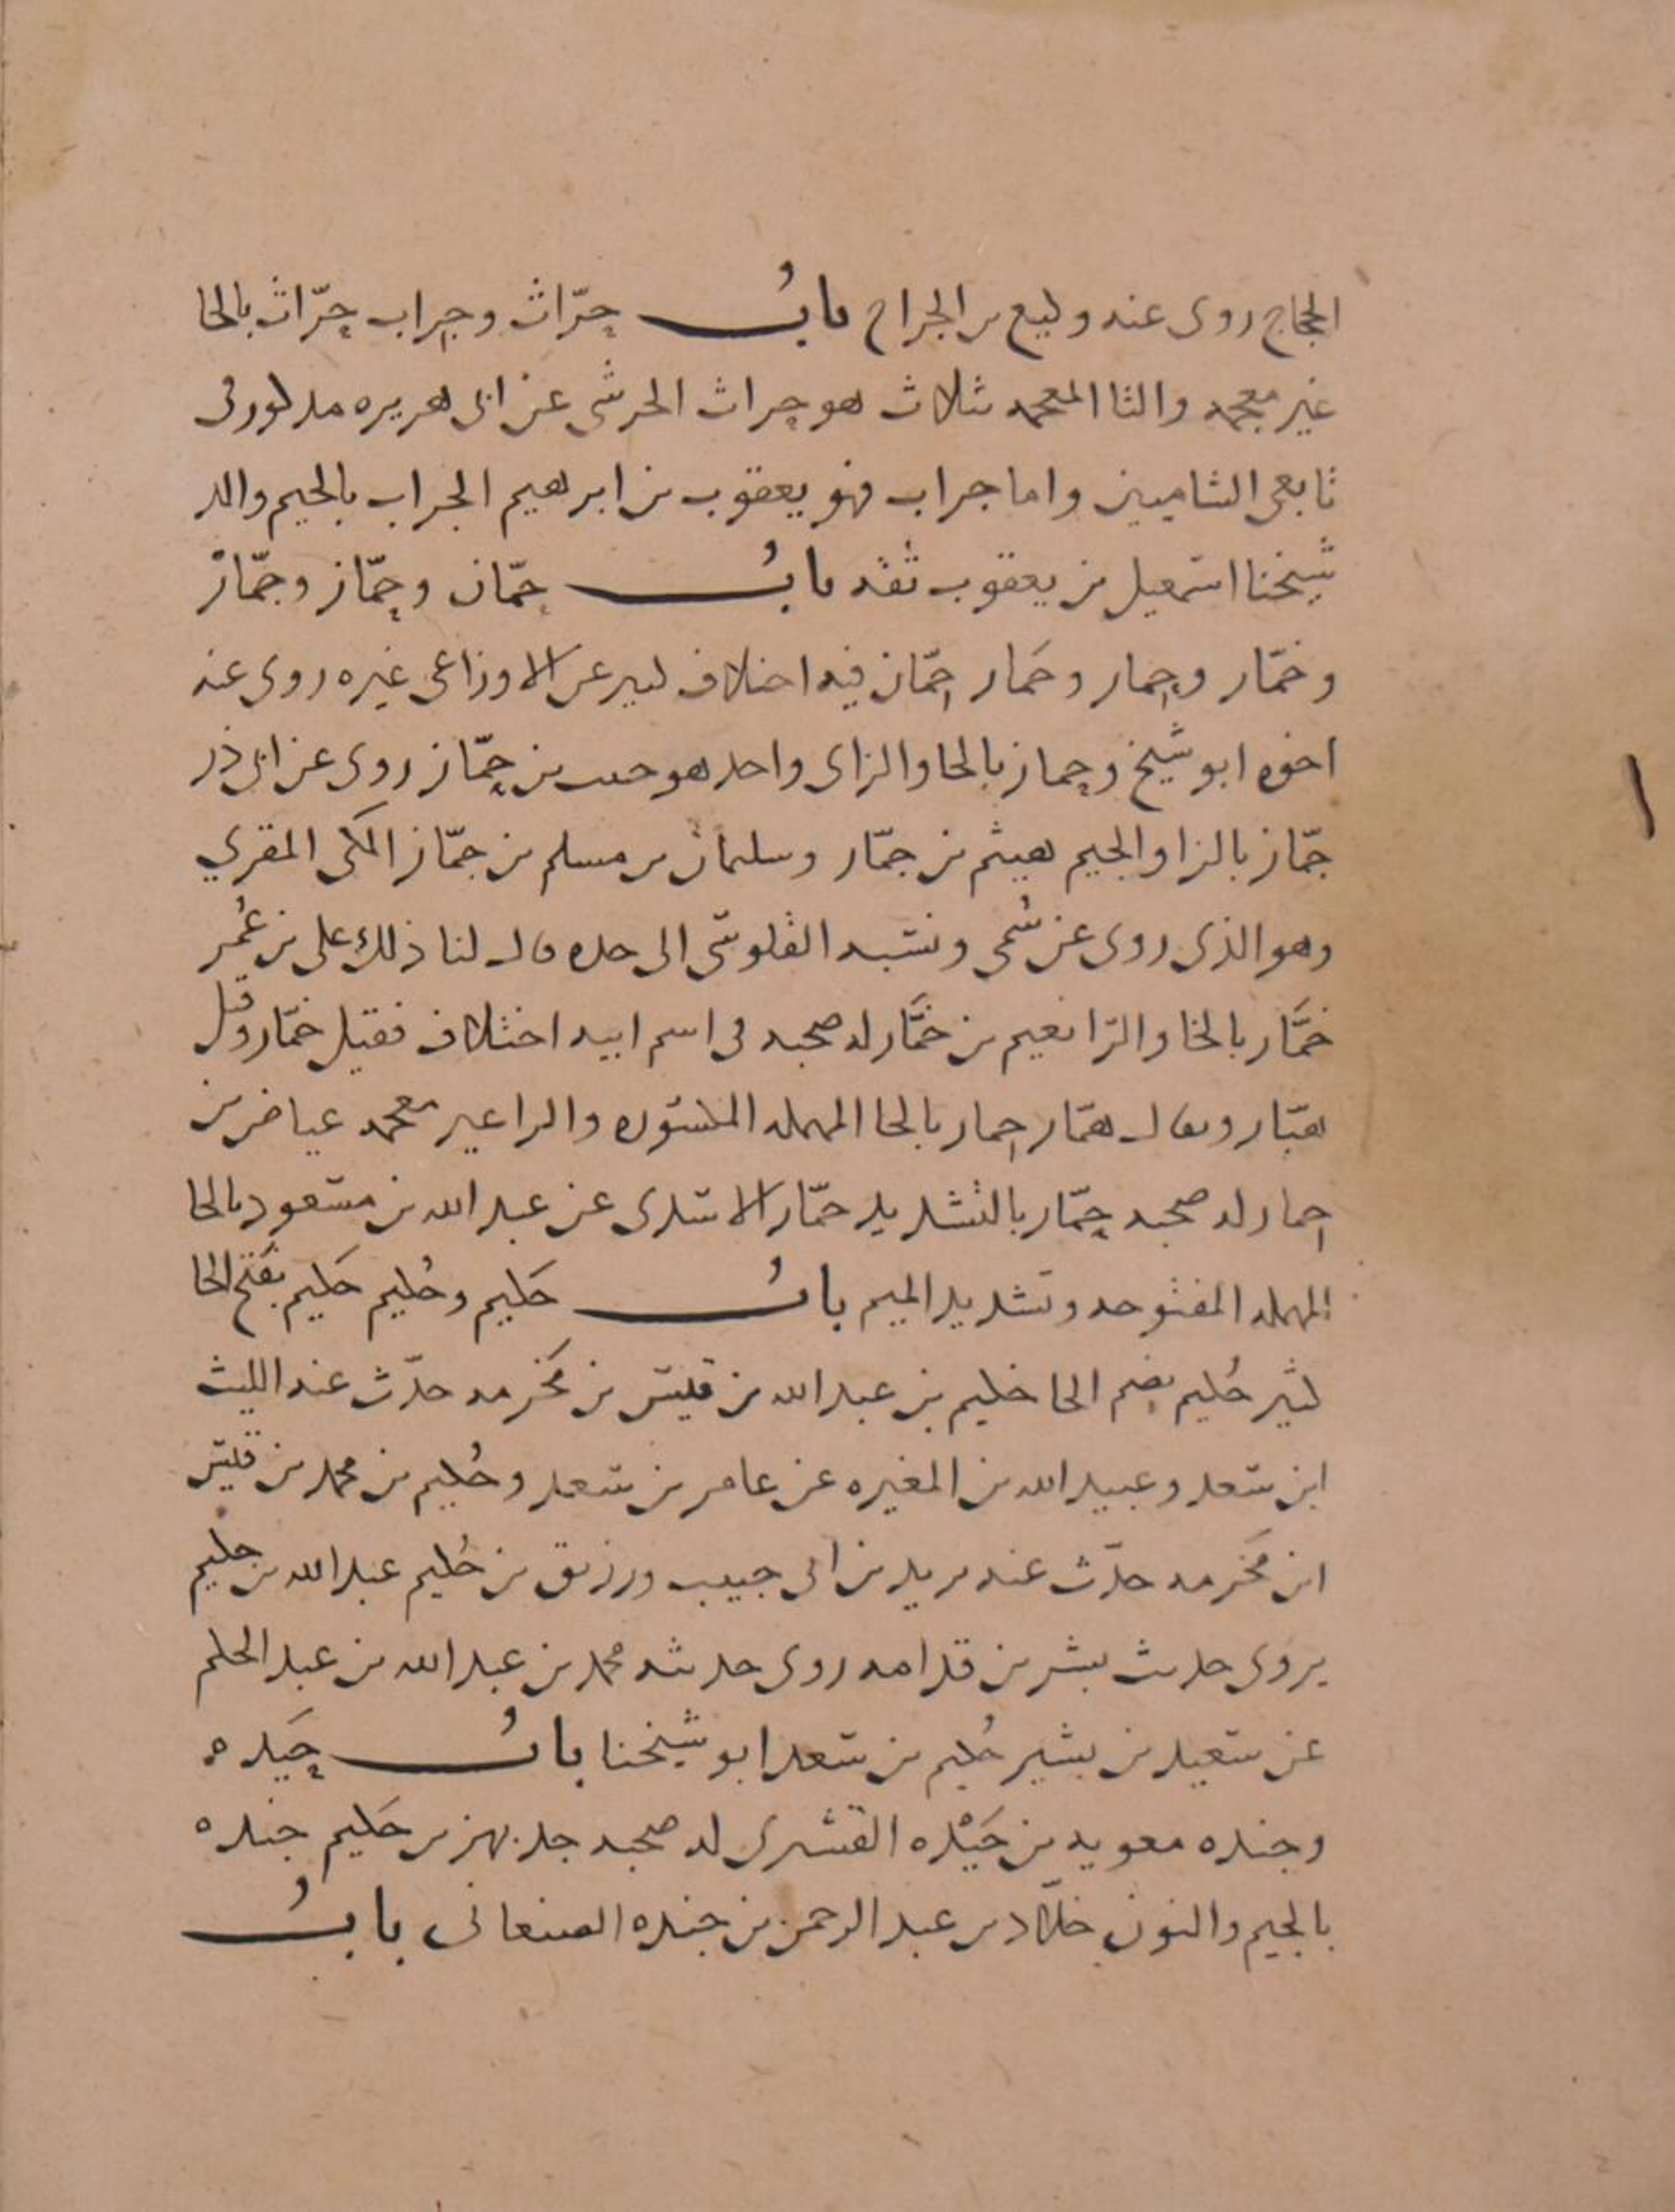 الحجاج روى عنه وكيع بن الجراح باب حرّاث وجراب حرّاث بالحا
غير معجمه والثا المعجمه بثلاث هو حراث الحرشي عن ابي هريره مذكور في
تابعي الشاميين واما جراب فهو يعقوب بن ابرهيم الجراب بالجيم والد
شيخنا اسمعيل بن يعقوب ثقه باب حمّان وحمّاز وجمّاز
وخمّار وحمار وحمار حمّان فيه اختلاف كبير عن الاوزاعي غيره روى عنه
اخوه ابو شيخ وحماز بالحا والزاى واحد هو حبيب بن حمّاز روى عن ابي ذر
جمّاز بالزا والجيم هيثم بن جمّاز وسليمان بن مسلم بن جمّاز المكي المقري
وهو الذي روى عن سُمي ونسبه القلوسي الى جده قال لنا ذلك علي بن عُمر
خمَّار بالخا والرّا نعيم بن خمَّار له صحبه في اسم ابيه اختلاف فقيل خمّار وقيل
هبّار ويقال همّار حمار بالحا المهمله المكسوره والرا غير معجمه عياض بن
حمار له صحبه حمّار بالتشديد حمّار الاسدى عن عبد الله بن مسعود بالحا
المهمله المفتوحه وتشديد الميم باب حَكيم وحُكيم حَكيم بفتح الحا
كثير حُكيم بضم الحا حكيم بن عبد الله بن قيس بن مخرمه حدّث عنه الليث
ابن سعد وعبيد الله بن المغيره عن عامر بن سعد وحُكيم بن محمد بن قيس
ابن مَخرمه حدّث عنه يزيد بن ابي حبيب ورزيق بن حُكيم عبد الله بن حكيم
يروى حديث بشر بن قدامه روى حديثه محمد بن عبد الله بن عبد الحكم
عن سعيد بن بشير حُكيم بن سعد ابو شيخنا باب حَيده
وجنده معويه بن حَيْده القشيرى له صحبه جد بهز بن حَكيم جنده
بالجيم والنون خلّاد بن عبد الرحمن بن جنده الصنعاني باب